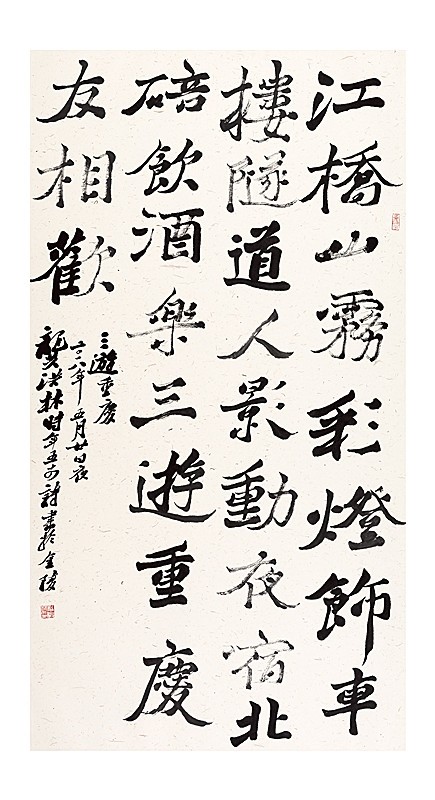 江橋山霧彩燈飾車
樓隧道人影動夜宿北
碚飲酒樂三遊重慶
友相歡
三遊重慶
二〇一八年五月廿日夜
龔洪林時年五十前詩書於金陵